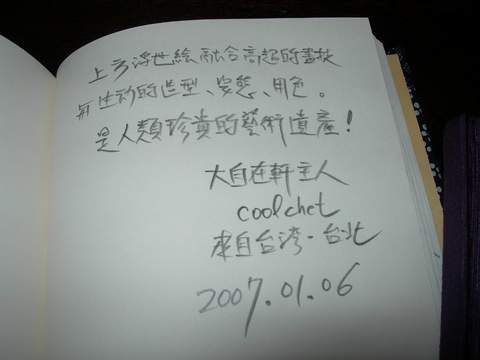 上方浮世絵融合高超的畫技
與生動的造型、姿態、用色。
是人類珍貴的藝術遺產!
大自在軒主人
coolchet
來自台湾-台北
2007.01.06